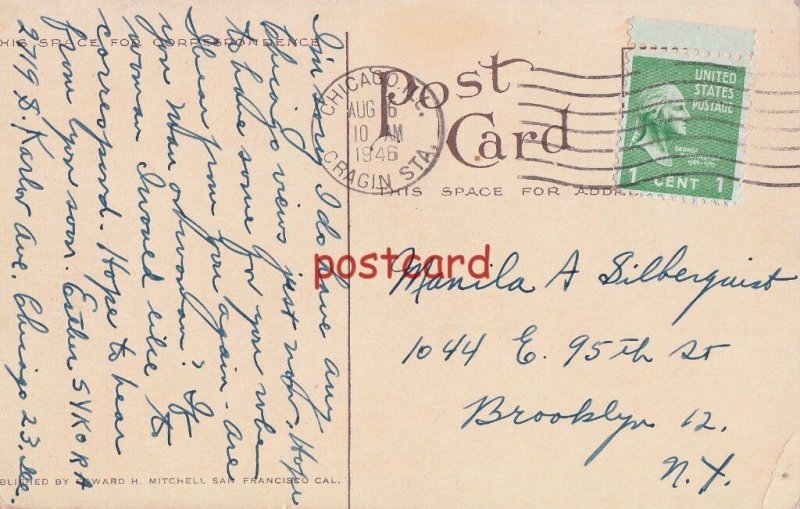 THIS SPACE FOR CORRESPONDENCE
I'm sorry I do have any
Chicago views just now. Hope
to have some for you when
I hear from you again. Are
you man or woman? If
woman I would like to
correspond. Hope to hear
from you soon. Esther SYKORA
2719 S. Karlov Ave. Chicago 23. Ill.
PUBLISHED BY EDWARD H. MITCHELL SAN FRANCISCO CAL.
Post
Card
CHICAGO, ILL.
AUG 6
10 AM
1946
CRAGIN STA.
THIS SPACE FOR ADDRESS
UNITED
STATES
POSTAGE
GEORGE
1 CENT 1
postcard
Manila A Silberquist
1044 E. 95th St
Brooklyn 12.
N.Y.